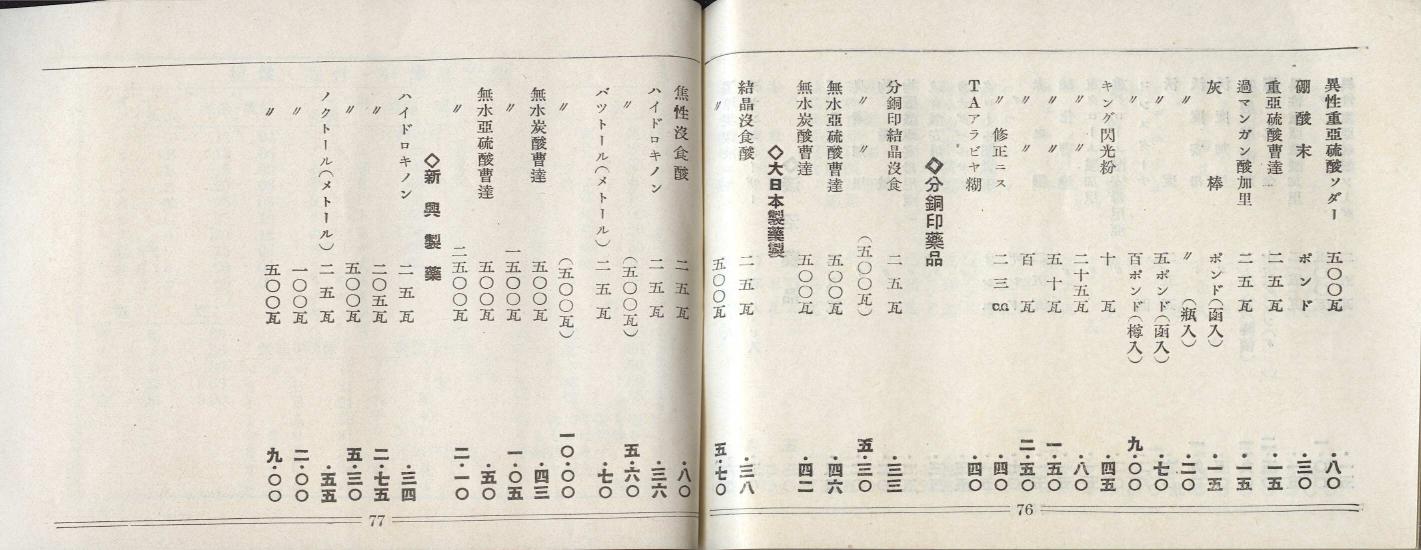 異性重亜硫酸ソダー 五〇〇瓦 ・八〇
硼酸末 ポンド ・三〇
重亞硫酸曹達 二五瓦 ・一五
過マンガン酸加里 二五瓦 ・一五
灰棒 ポンド(函入) ・一五
〃 〃(瓶入) ・二〇
〃 五ポンド(函入) ・七〇
〃 百ポンド(樽入) 九・〇〇
キング閃光粉 十瓦 ・四五
〃 〃 二十五瓦 ・八〇
〃 〃 五十瓦 一・五〇
〃 〃 百瓦 二・五〇
〃 修正ニス 二三c.c. ・四〇
TAアラビヤ糊 ・四〇
◇分銅印藥品
分銅印結晶沒食 二五瓦 ・三三
〃 〃 (五〇〇瓦) 五・三〇
無水亞硫酸曹達 五〇〇瓦 ・四六
無水炭酸曹達 五〇〇瓦 ・四二
◇大日本製藥製
結晶沒食酸 二五瓦 ・三八
〃 五〇〇瓦 五・七〇
76
焦性沒食酸 二五瓦 ・八〇
ハイドロキノン 二五瓦 ・三六
〃 (五〇〇瓦) 五・六〇
バツトール(メトール) 二五瓦 ・七〇
〃 (五〇〇瓦) 一〇・〇〇
無水炭酸曹達 五〇〇瓦 ・四三
〃 一五〇〇瓦 一・〇五
無水亞硫酸曹達 五〇〇瓦 ・五〇
〃 二五〇〇瓦 二・一〇
◇新興製藥
ハイドロキノン 二五瓦 ・三四
〃 二〇五瓦 二・七五
〃 五〇〇瓦 五・三〇
ノクトール(メトール) 二五瓦 ・五五
〃 一〇〇瓦 二・〇〇
〃 五〇〇瓦 九・〇〇
77